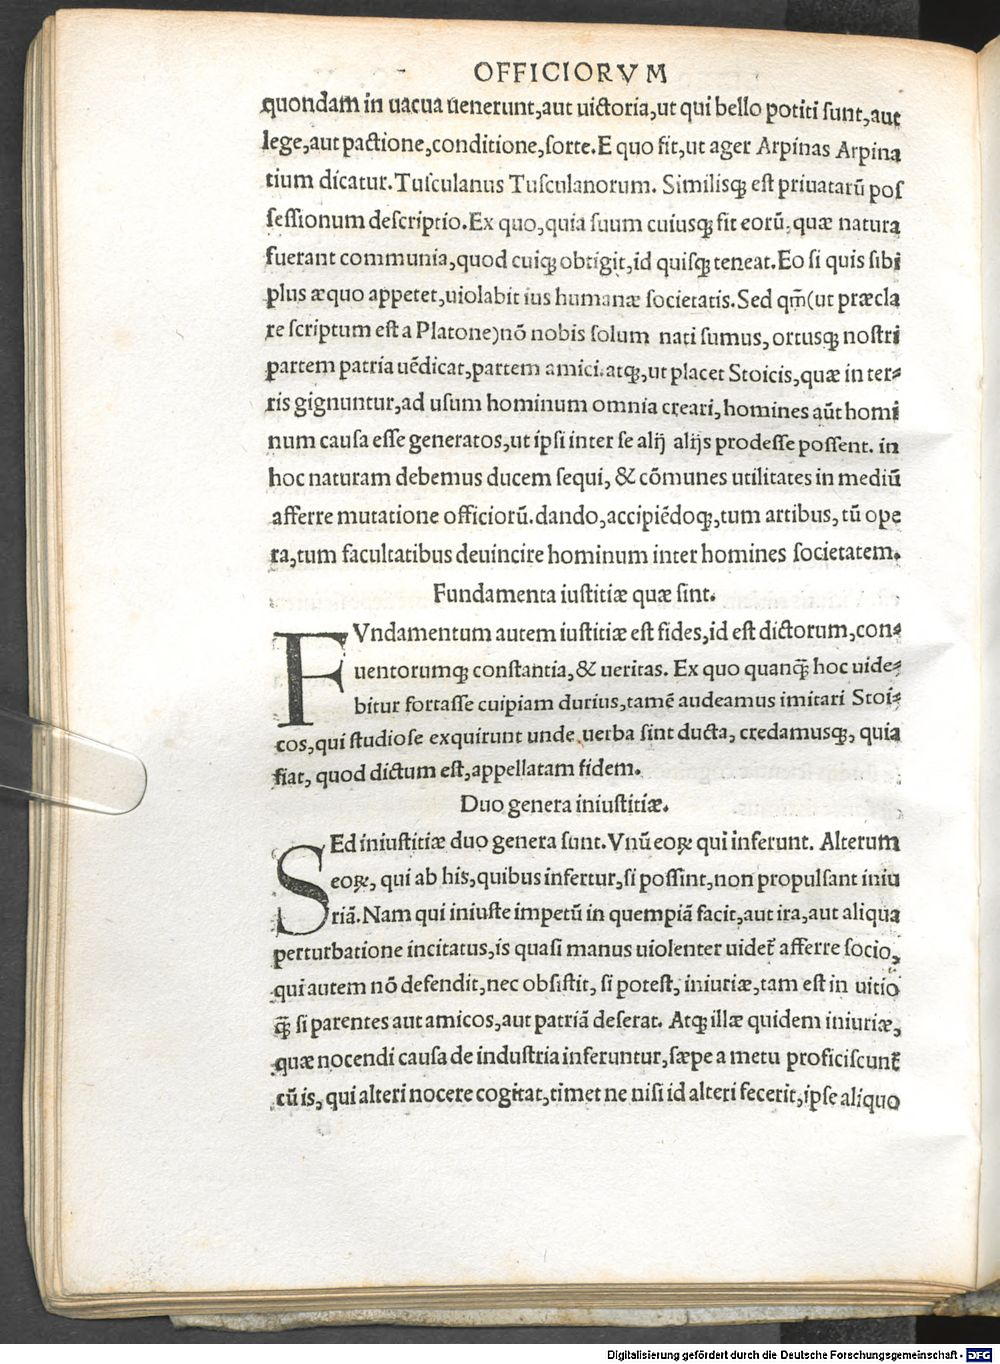 OFFICIORVM
quondam in uacua uenerunt,aut uictoria,ut qui bello potiti sunt,aut
lege,aut pactione,conditione,sorte.E quo fit,ut ager Arpinas Arpina
tium dicatur.Tusculanus Tusculanorum. Similisqꝫ est priuatarũ pos
sessionum descriptio.Ex quo,quia suum cuiusqꝫ fit eorũ,quæ natura
fuerant communia,quod cuiqꝫ obtigit,id quisqꝫ teneat.Eo si quis sibi
plus æquo appetet,uiolabit ius humanæ societatis.Sed qm̃(ut præcla
re scriptum est a Platone)nõ nobis solum nati sumus,ortusqꝫ nostri
partem patria uẽdicat,partem amici.atqꝫ,ut placet Stoicis,quæ in ter⸗
ris gignuntur,ad usum hominum omnia creari,homines aũt homi
num causa esse generatos,ut ipsi inter se alij alijs prodesse possent. in
hoc naturam debemus ducem sequi, & cõmunes utilitates in mediũ
afferre mutatione officiorũ.dando,accipiẽdoqꝫ,tum artibus,tũ ope
ra,tum facultatibus deuincire hominum inter homines societatem.
Fundamenta iustitiæ quæ sint.
FVndamentum autem iustitiæ est fides,id est dictorum,con⸗
uentorumqꝫ constantia,& ueritas. Ex quo quanqꝫ̃ hoc uide⸗
bitur fortasse cuipiam durius,tamẽ audeamus imitari Stoi⸗
cos,qui studiose exquirunt unde uerba sint ducta, credamusqꝫ, quia
fiat, quod dictum est,appellatam fidem.
Duo genera iniustitiæ.
SEd iniustitiæ duo genera sunt.Vnũ eoꝝ qui inferunt. Alterum
eoꝝ, qui ab his,quibus infertur,si possint,non propulsant iniu
riã.Nam qui iniuste impetũ in quempiã facit,aut ira,aut aliqua
perturbatione incitatus,is quasi manus uiolenter uidet᷑ afferre socio,
qui autem nõ defendit,nec obsistit, si potest, iniuriæ,tam est in uitio
qꝫ̃ si parentes aut amicos,aut patriã deserat. Atqꝫ illæ quidem iniuriæ,
quæ nocendi causa de industria inferuntur,sæpe a metu proficiscunt᷑
cũ is, qui alteri nocere cogitat,timet ne nisi id alteri fecerit,ipse aliquo
Digitalisierung gefördert durch die Deutsche Forschungsgemeinschaft - DFG